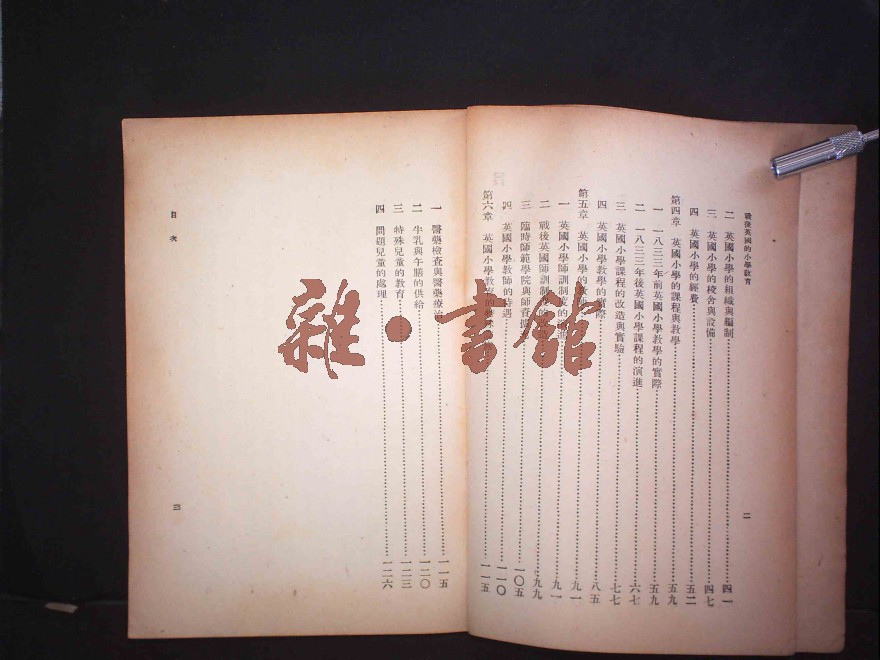 戰後英國的小學教育
二
二 英國小學的組織與編制 四一
三 英國小學的校舍與設備 四七
四 英國小學的經費 五二
第四章 英國小學的課程與教學 五九
一 一八三三年前英國小學教學的實際 五九
二 一八三三年後英國小學課程的演進 六七
三 英國小學課程的改造與實驗 七七
四 英國小學教學的實際 八五
第五章 英國小學的 九一
一 英國小學師訓制度的 九一
二 戰後英國師訓制 九九
三 臨時師範學院與師資 一〇五
四 英國小學教師的待遇 一一〇
第六章 英國小學教育的 一一五
一 醫藥檢查與醫藥療治 一一五
二 牛乳與午膳的供給 一二〇
三 特殊兒童的教育 一二三
四 問題兒童的處理 一二六
目次
三
雜·書館